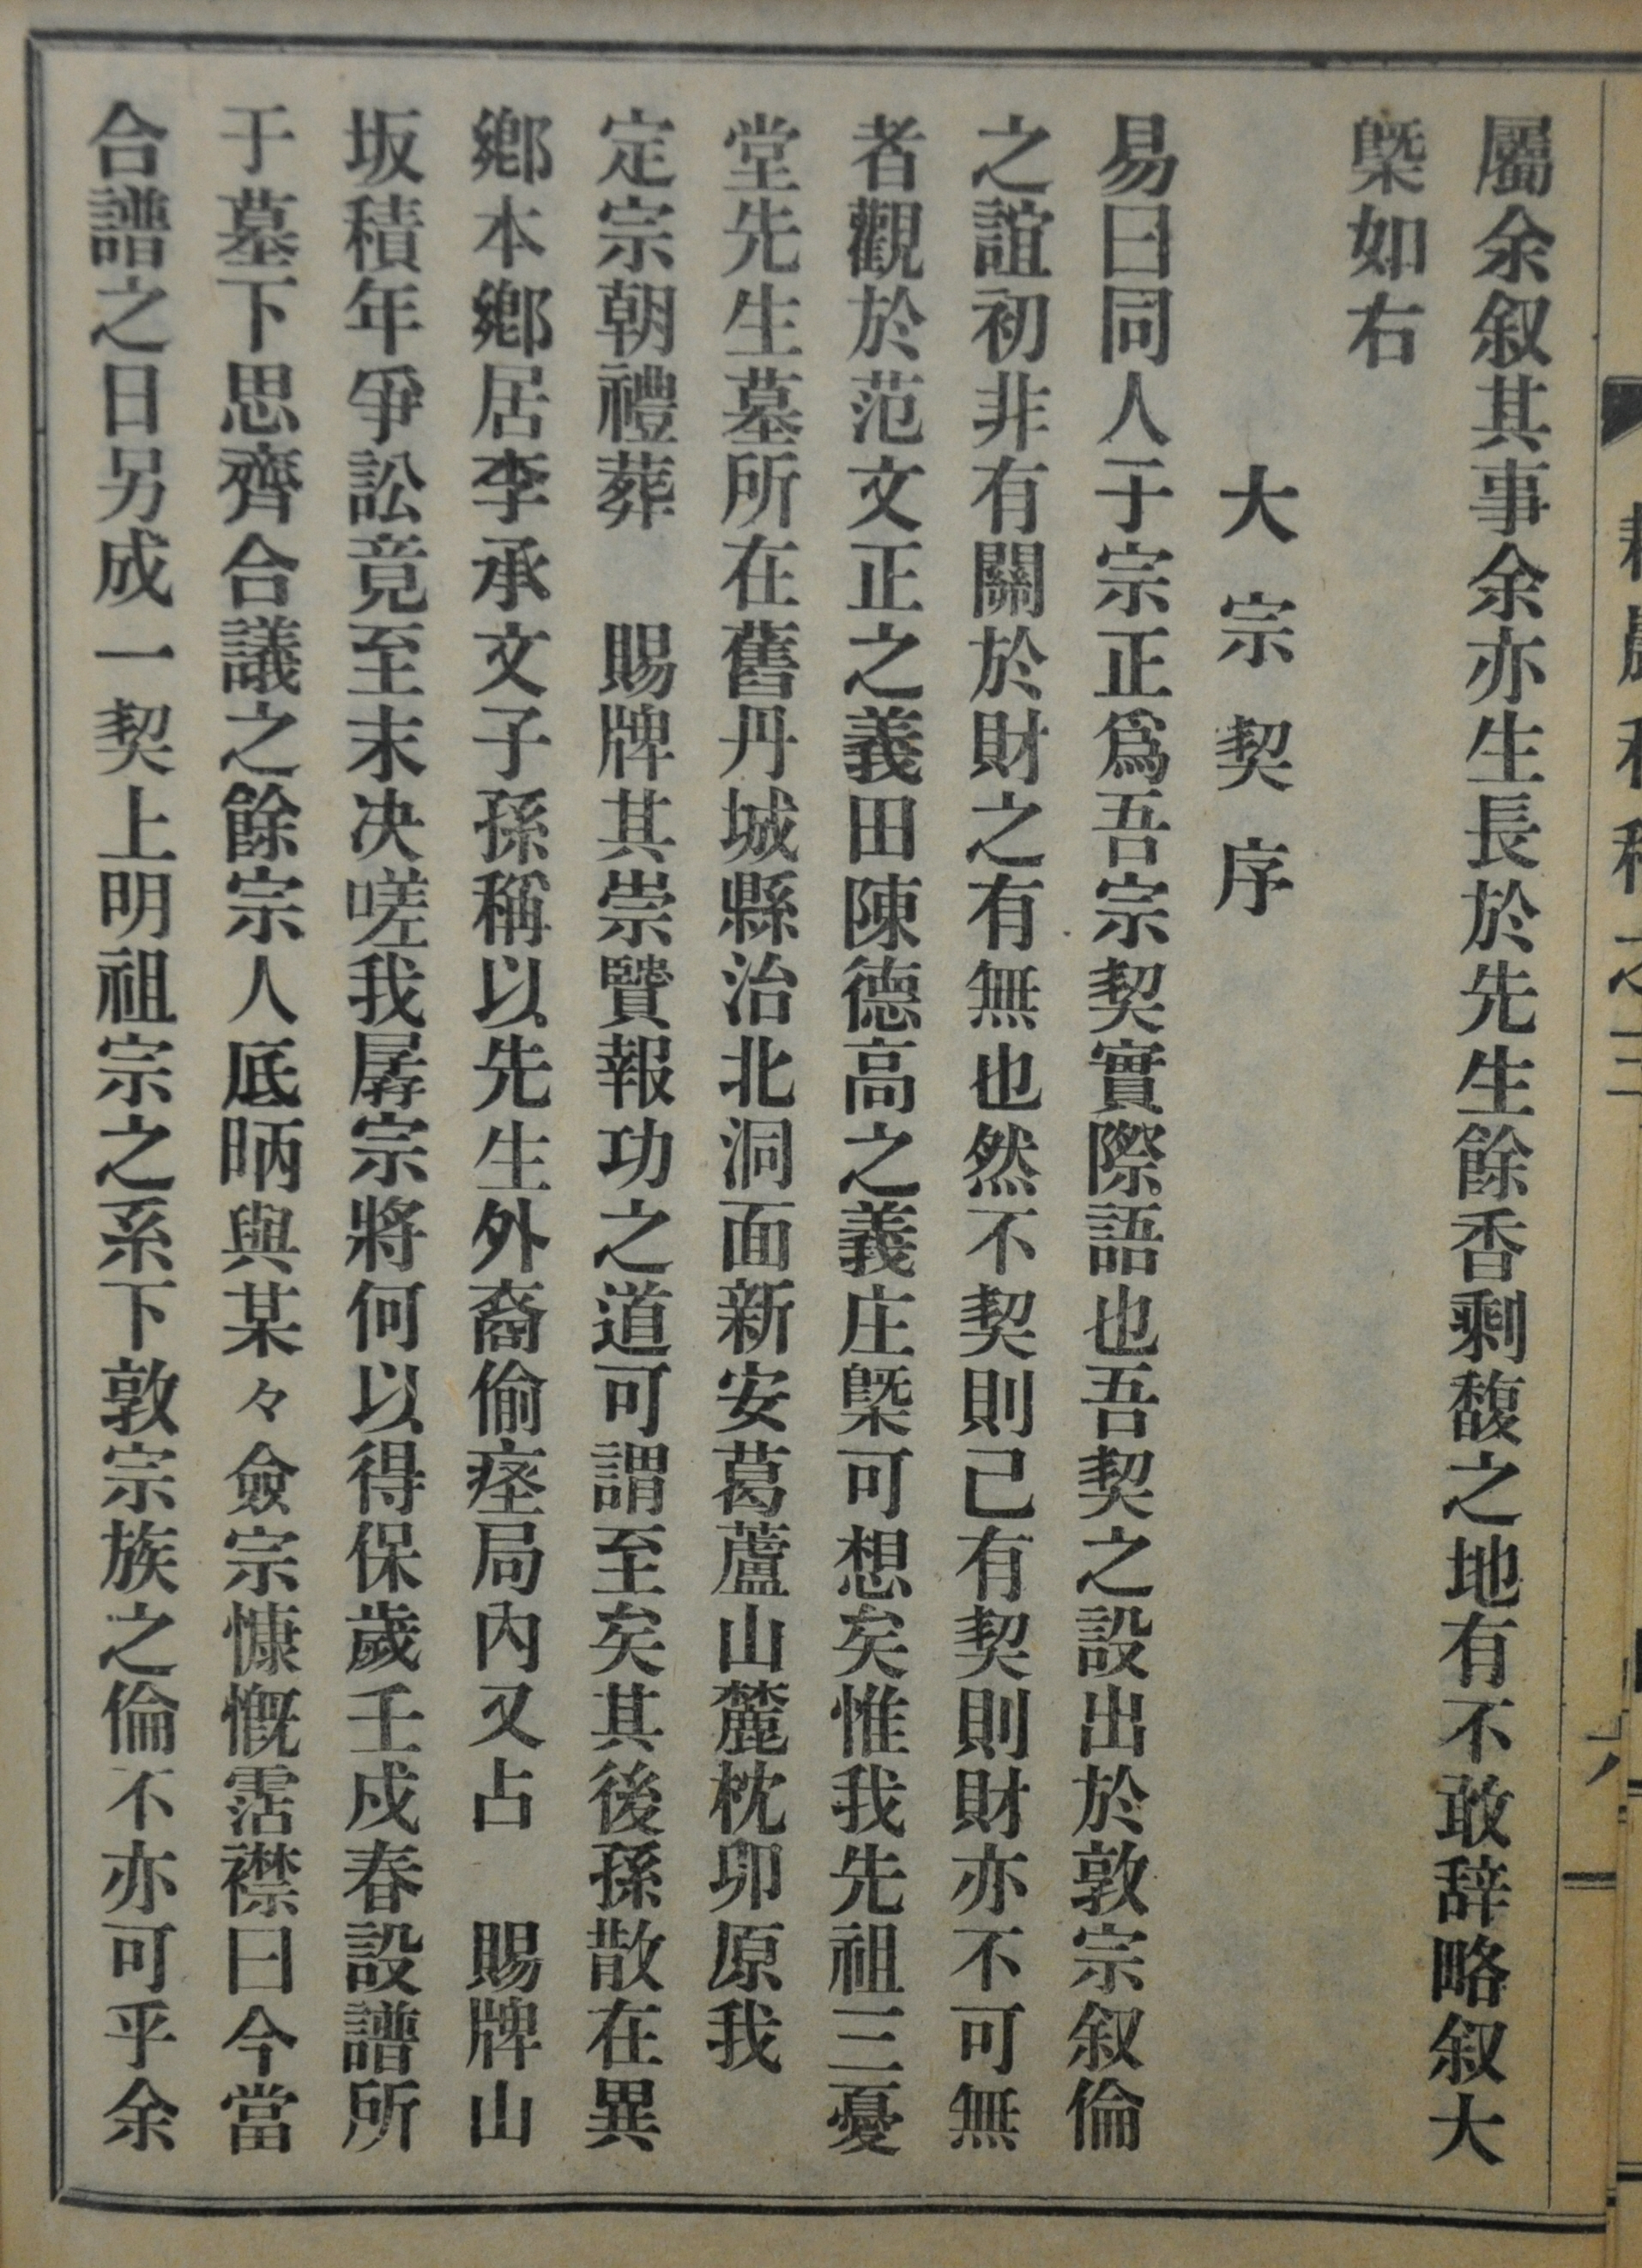 屬余叙其事余亦生長於先生餘香剩馥之地有不敢辞略叙大
槩如右
大宗契序
易曰同人于宗正爲吾宗契實際語也吾契之設出於敦宗叙倫
之誼初非有關於財之有無也然不契則已有契則財亦不可無
者觀於范文正之義田陳德高之義庄槩可想矣惟我先祖三憂
堂先生墓所在舊丹城縣治北洞面新安葛蘆山麓枕卯原我
定宗朝禮葬　賜牌其崇賢報功之道可謂至矣其後孫散在異
鄕本鄕居李承文子孫稱以先生外裔偷瘞局內又占　賜牌山
坂積年爭訟竟至末决嗟我孱宗將何以得保歲壬戍春設譜所
于墓下思齊合議之餘宗人底昞與某々僉宗慷慨霑襟曰今當
合譜之日另成一契上明祖宗之系下敦宗族之倫不亦可乎余